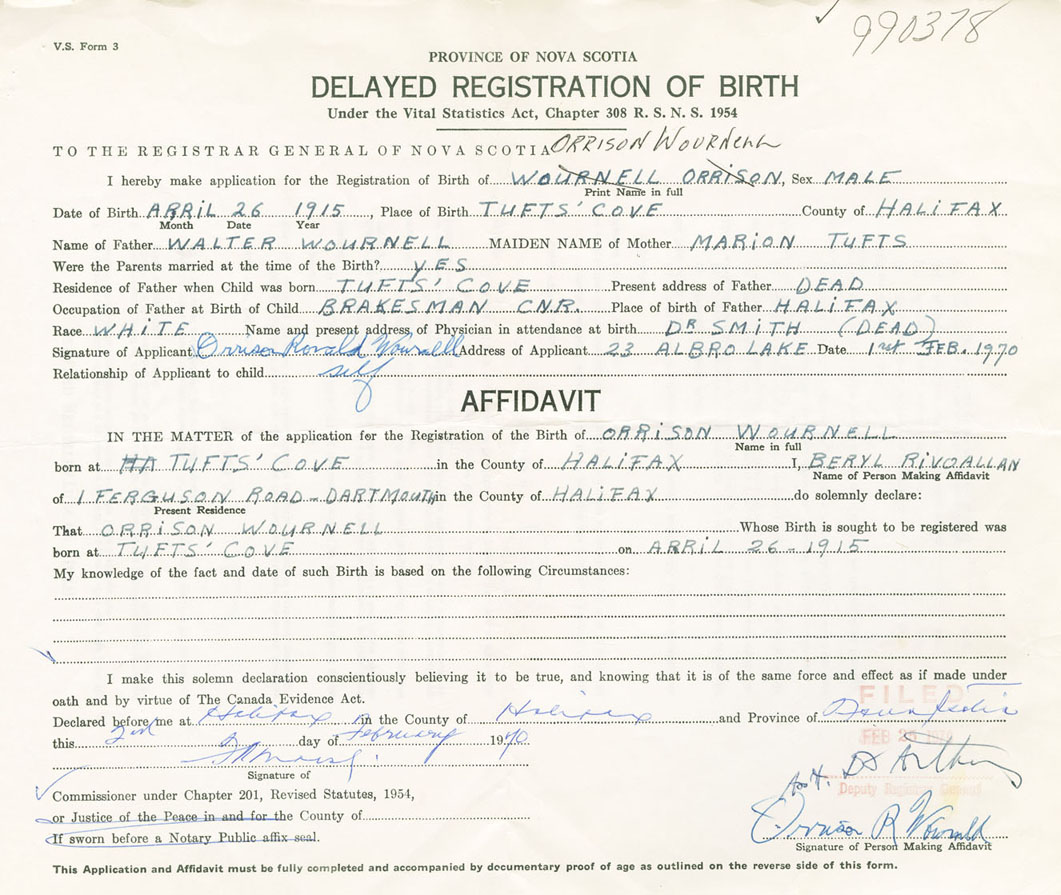 990378
V.S. Form 3
PROVINCE OF NOVA SCOTIA
DELAYED REGISTRATION OF BIRTH
Under the Vital Statistics Act, Chapter 308 R. S. N. S. 1954
TO THE REGISTRAR GENERAL OF NOVA SCOTIA ORRISON WOURNELL
I hereby make application for the Registration of Birth of WOURNELL ORRISON, Sex MALE
Print Name in full
Date of Birth APRIL 26 1915, Place of Birth TUFTS' COVE County of HALIFAX
Month Date Year
Name of Father WALTER WOURNELL MAIDEN NAME of Mother MARION TUFTS
Were the Parents married at the time of the Birth? YES
Residence of Father when Child was born TUFTS' COVE Present address of Father DEAD
Occupation of Father at Birth of Child BRAKESMAN CNR. Place of birth of Father HALIFAX
Race WHITE Name and present address of Physician in attendance at birth DR SMITH (DEAD)
Signature of Applicant Orrison Ronald Wournell Address of Applicant 23 ALBRO LAKE Date 1st FEB. 1970
Relationship of Applicant to child self
AFFIDAVIT
IN THE MATTER of the application for the Registration of the Birth of ORRISON WOURNELL
Name in full
born at HA TUFTS' COVE in the County of HALIFAX I, BERYL RIVOALLAN
Name of Person Making Affidavit
of 1 FERGUSON ROAD - DARTMOUTH in the County of HALIFAX do solemnly declare:
Present Residence
That ORRISON WOURNELL Whose Birth is sought to be registered was
born at TUFTS' COVE on APRIL 26 - 1915
My knowledge of the fact and date of such Birth is based on the following Circumstances:
I make this solemn declaration conscientiously believing it to be true, and knowing that it is of the same force and effect as if made under
oath and by virtue of The Canada Evidence Act.
FILED
Declared before me at Halifax in the County of Halifax and Province of Nova Scotia
this 2nd day of February 1970
FEB 1970
Signature of
Deputy Registrar General
Commissioner under Chapter 201, Revised Statutes, 1954,
or Justice of the Peace in and for the County of
Orrison R Wournell
If sworn before a Notary Public affix seal.
Signature of Person Making Affidavit
This Application and Affidavit must be fully completed and accompanied by documentary proof of age as outlined on the reverse side of this form.